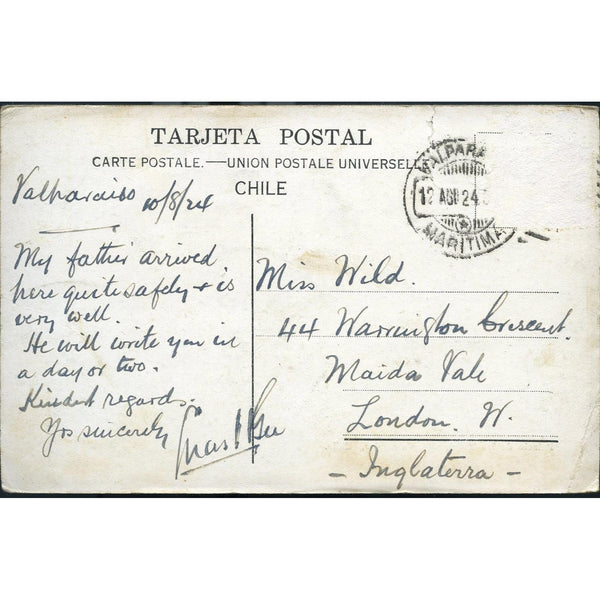 TARJETA POSTAL
CARTE POSTALE.—UNION POSTALE UNIVERSELL
CHILE
VALPARA
12 AGO 24
MARITIMA
Valparaiso 10/8/24
My father arrived
here quite safely & is
very well.
He will write you in
a day or two.
Kindest regards.
Yrs sincerely
Miss Wild.
44 Warrington Crescent.
Maida Vale
London. W.
- Inglaterra -